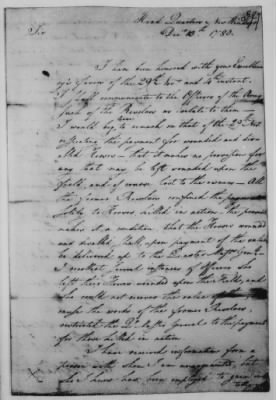 Head Quarters New Windsor
Decr 10th 1780.
Sir
I have been honored with your Excellency's
favors of the 29th ult and 1st instant.
I shall communicate to the Officers of the Army
such of the Resolves as relate to them
I would beg to remark on that of the
respecting the payment for wounded and
killed Horses that it makes no provision for
any that may be left wounded upon the
field, and of course lost to the owners All
the former Resolves confined the payment
solely to Horses killed in action the present
makes it a condition that the Horses wounded
and disabled, shall upon payment of the value
be delivered up to the Quarter Master General
I recollect several instances of Officers who
left their Horses wounded upon the Field, and
who could not recover the value of them
the words of the former Resolves
the Qr Master General to the payment
for those killed in action
I have received information from a
person with whom I am unacquainted, but
who I have been employed